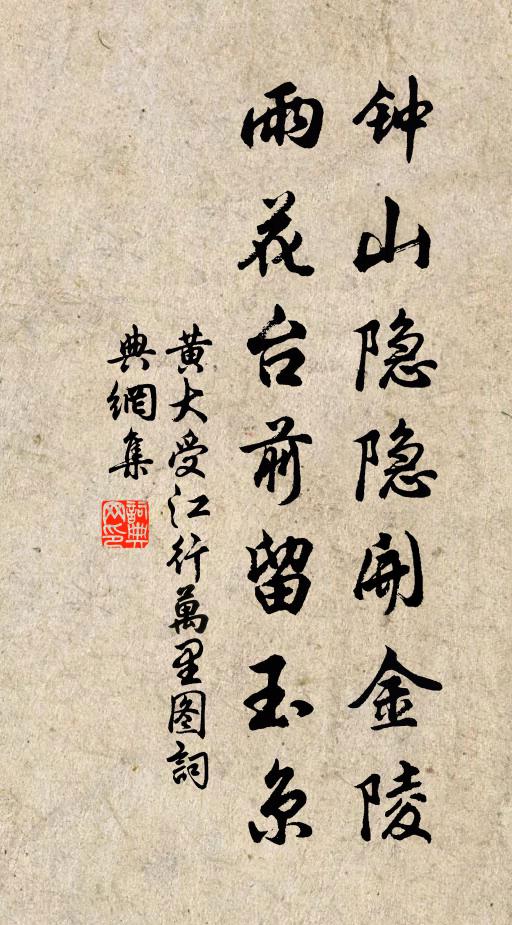 钟山隐隐开金陵
雨花台前留玉京
黄大受江行萬里图詞
典網集
詞典
网印